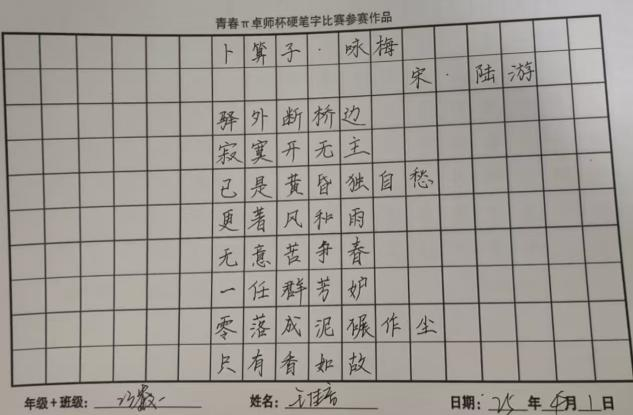 青春π卓师杯硬笔字比赛参赛作品
卜算子·咏梅
宋·陆游
驿外断桥边
寂寞开无主
已是黄昏独自愁
更著风和雨
无意苦争春
一任群芳妒
零落成泥碾作尘
只有香如故
年级+班级: 姓名: 日期: 25年4月1日